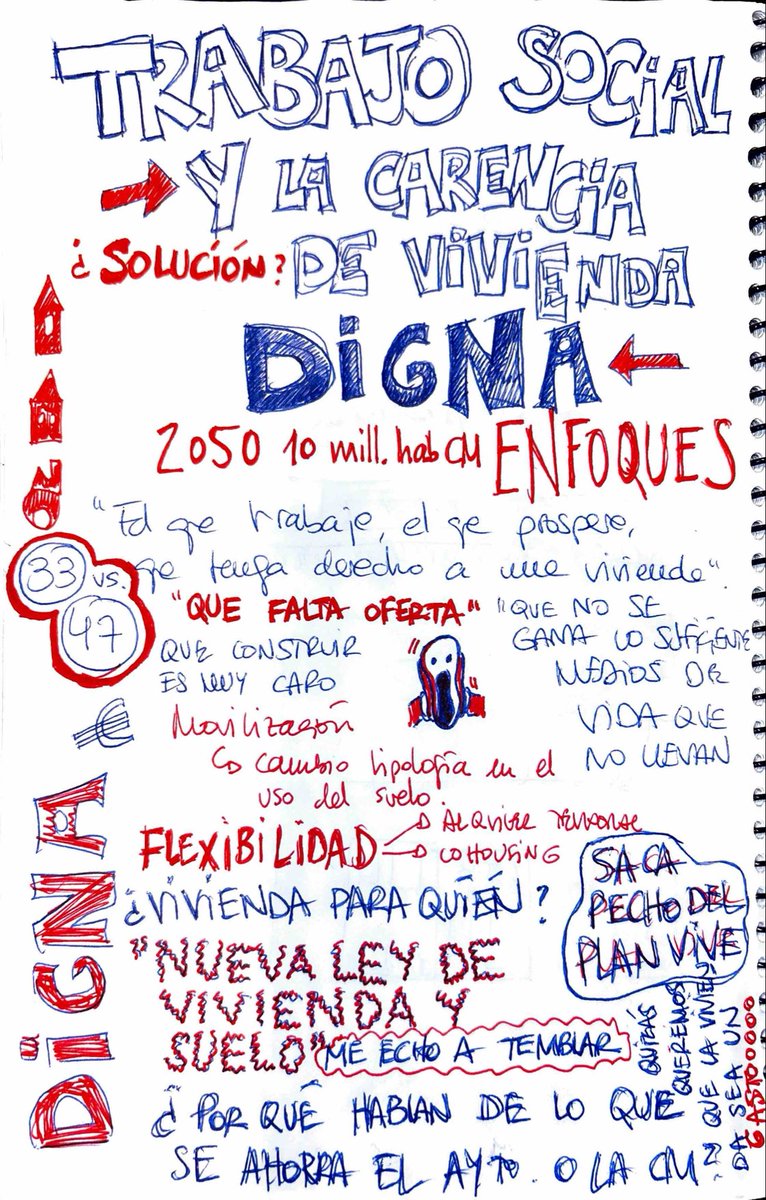 TRABAJO SOCIAL
Y LA CARENCIA
¿SOLUCIÓN?
DE VIVIENDA
DIGNA
2050 10 mill. hab CM
ENFOQUES
"El que trabaje, el que prospere,
que tenga derecho a una vivienda".
33 vs.
47
"QUE FALTA OFERTA"
QUE CONSTRUIR
ES MUY CARO
"QUE NO SE
GAMA LO SUFICIENTE
MEDIOS DE
VIDA QUE
NO LLEVAN
€
Movilización
cambio tipología en el
uso del suelo.
FLEXIBILIDAD
ALQUILER TEMPORAL
COHOUSING
SACA
PECHO DEL
PLAN VIVE
¿VIVIENDA PARA QUIÉN?
"NUEVA LEY DE
VIVIENDA Y
SUELO"
ME ECHO A TEMBLAR
¿POR QUÉ HABLAN DE LO QUE
SE AHORRA EL AYTO. O LA CM
?
QUIZÁS
QUEREMOS
QUE LA VIVIEN
DA SEA UN
GASTOOOOO
DIGNA